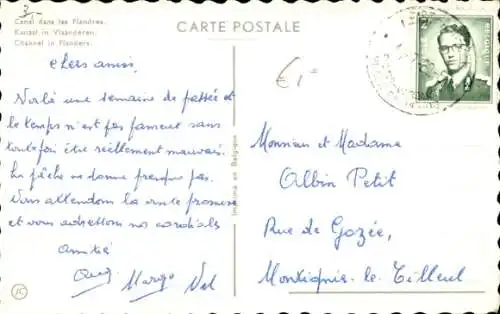 3
Canal dans les Flandres.
Kanaal in Vlaanderen.
Channel in Flanders.
CARTE POSTALE
Chers amis,
Voilà une semaine de passée et
le temps n'est pas fameux sans
toutefois être réellement mauvais.
La pêche ne donne presque pas.
Nous attendons la visite promise
et vous adressons nos cordiales
amitié
Margo
€1-
Imprimé en Belgique
Monsieur et Madame
Albin Petit
Rue de Gozée,
Montignie-le-Tilleul